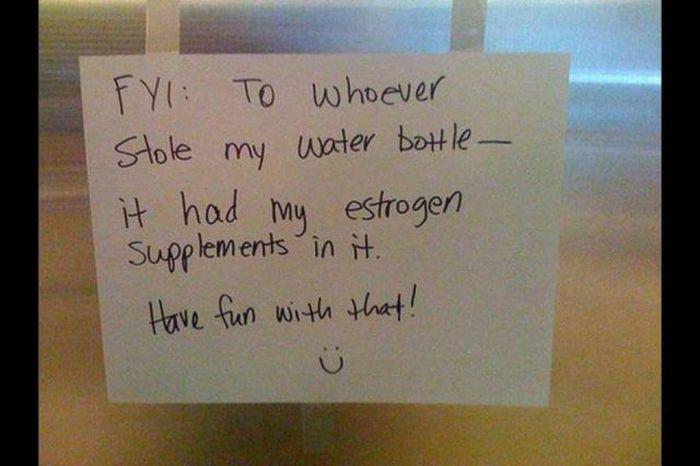 FYI: To whoever
Stole my water bottle—
it had my estrogen
supplements in it.
Have fun with that!
:)